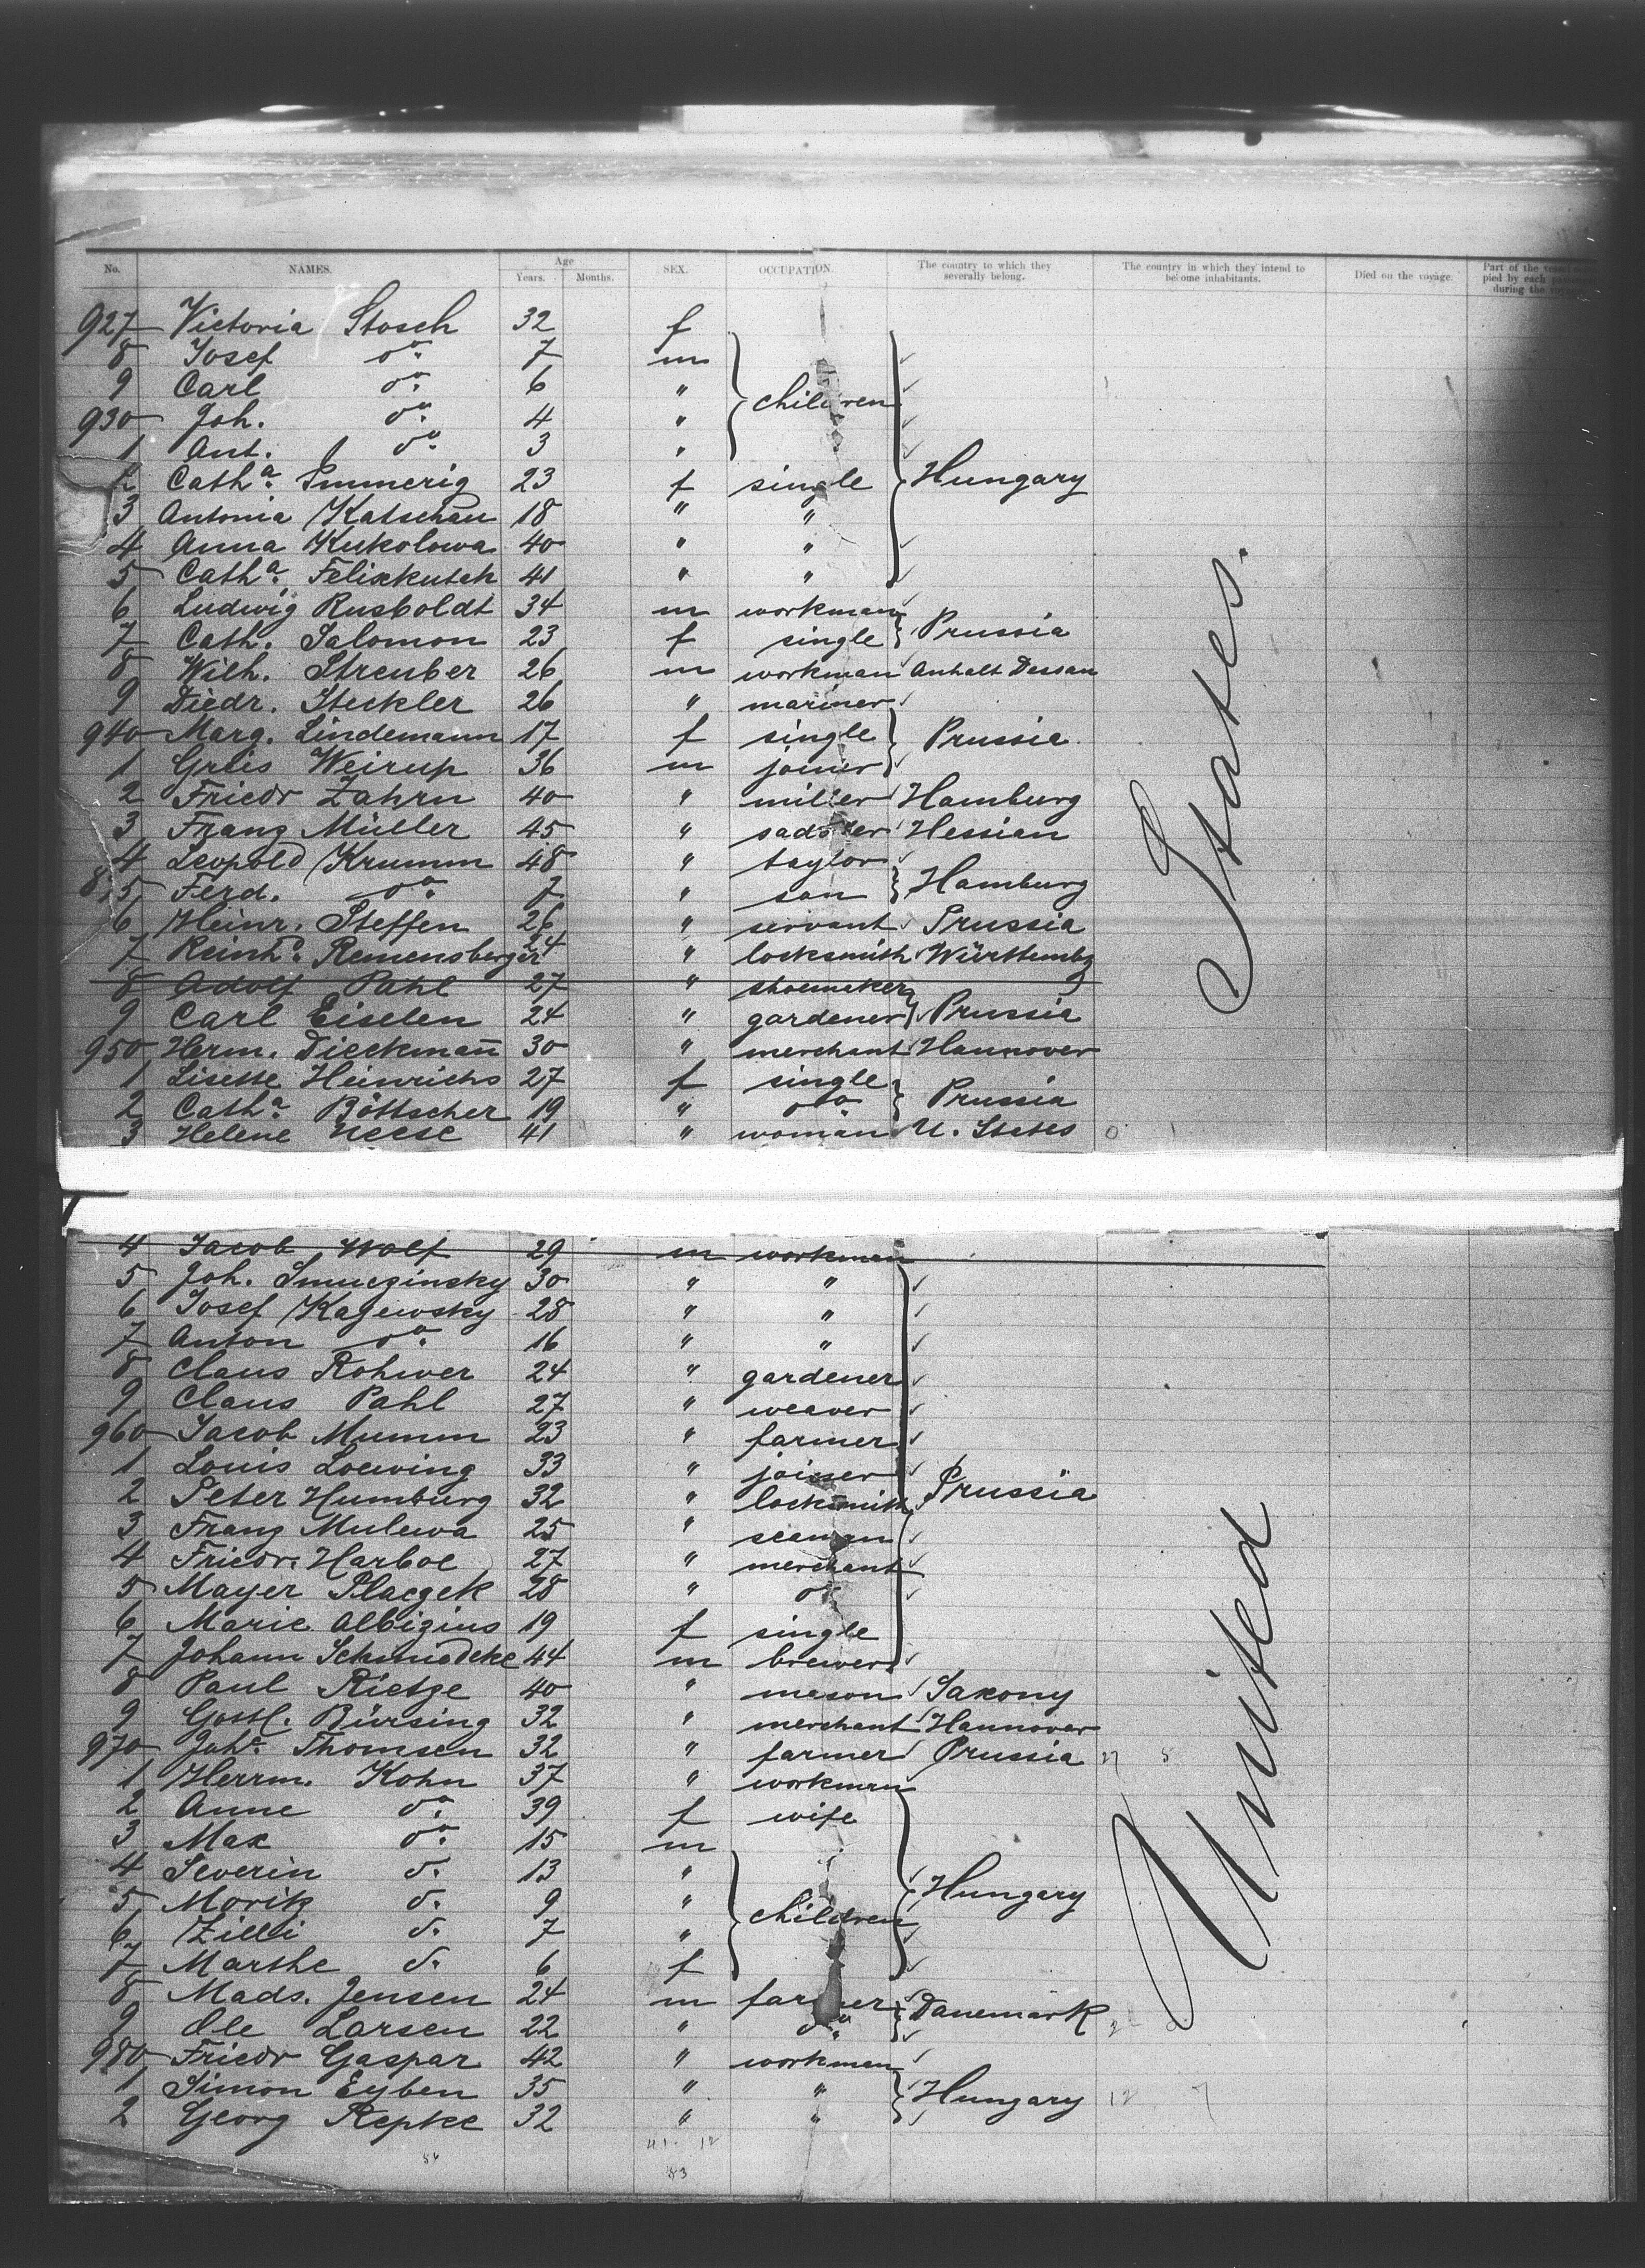 No. NAMES. Age Years. Months. SEX. OCCUPATION. The country to which they severally belong. The country in which they intend to become inhabitants. Died on the voyage. Part of the
927 Victoria Stosch 32 f
8 Josef do. 7 m
9 Carl do. 6 " children
930 Joh. do. 4 "
1 Ant. do. 3 "
2 Catha. Immerig 23 f single Hungary
3 Antonia Katschau 18 " "
4 Anna Kukolowa 40 " "
5 Catha. Felixkutsch 41 " "
6 Ludwig Rusboldt 34 m workman
7 Cath. Salomon 23 f single Prussia
8 Wilh. Streuber 26 m workman Anhalt Dessau
9 Diedr. Steckler 26 " mariner
940 Marg. Lindemann 17 f single Prussia
1 Weirup 36 m joiner
2 Friedr Zahrn 40 " miller Hamburg
3 Franz Müller 45 " saddler Hessian
4 Leopold Krumm 48 " taylor
5 Ferd. do. 7 " son Hamburg
6 Heinr. Steffen 26 " servant Prussia
7 Reinhd. Remensberger 24 " locksmith Württembg
8 Adolf Pahl 27 " shoemaker
9 Carl Eiselen 24 " gardener Prussia
950 Herm. Dieckman̄ 30 " merchant Hannover
1 Lisette Heinrichs 27 f single
2 Catha. Böttscher 19 " do Prussia
3 Helene Neese 41 " woman U. States
States.
4 Jacob Wolf 29 m workman
5 Joh. Smuczinsky 30 " "
6 Josef Kagewsky 28 " "
7 Anton do. 16 " "
8 Claus Rohwer 24 " gardener
9 Claus Pahl 27 " weaver
960 Jacob Mumm 23 " farmer
1 Louis Loewing 33 " joiner
2 Peter Humburg 32 " locksmith Prussia
3 Franz Mulewa 25 " seaman
4 Friedr. Harboe 27 " merchant
5 Mayer Placzek 28 " do
6 Marie Albizius 19 f single
7 Johann Schmiedeke 44 m brewer
8 Paul Rietze 40 " mason Saxony
9 Gottl. Bürsing 32 " merchant Hannover
970 Johs. Thomsen 32 " farmer Prussia
1 Herrm. Kohn 37 " workman
2 Anne do. 39 f wife
3 Max do. 15 m
4 Severin d. 13 " Hungary
5 Moritz d. 9 " children
6 Zilli d. 7 "
7 Marthe d. 6 f
8 Mads. Jensen 24 m farmer Danemark
9 Ole Larsen 22 " do
980 Friedr Gaspar 42 " workman
1 Simon Eyben 35 " " Hungary
2 Georg Repke 32 " "
United